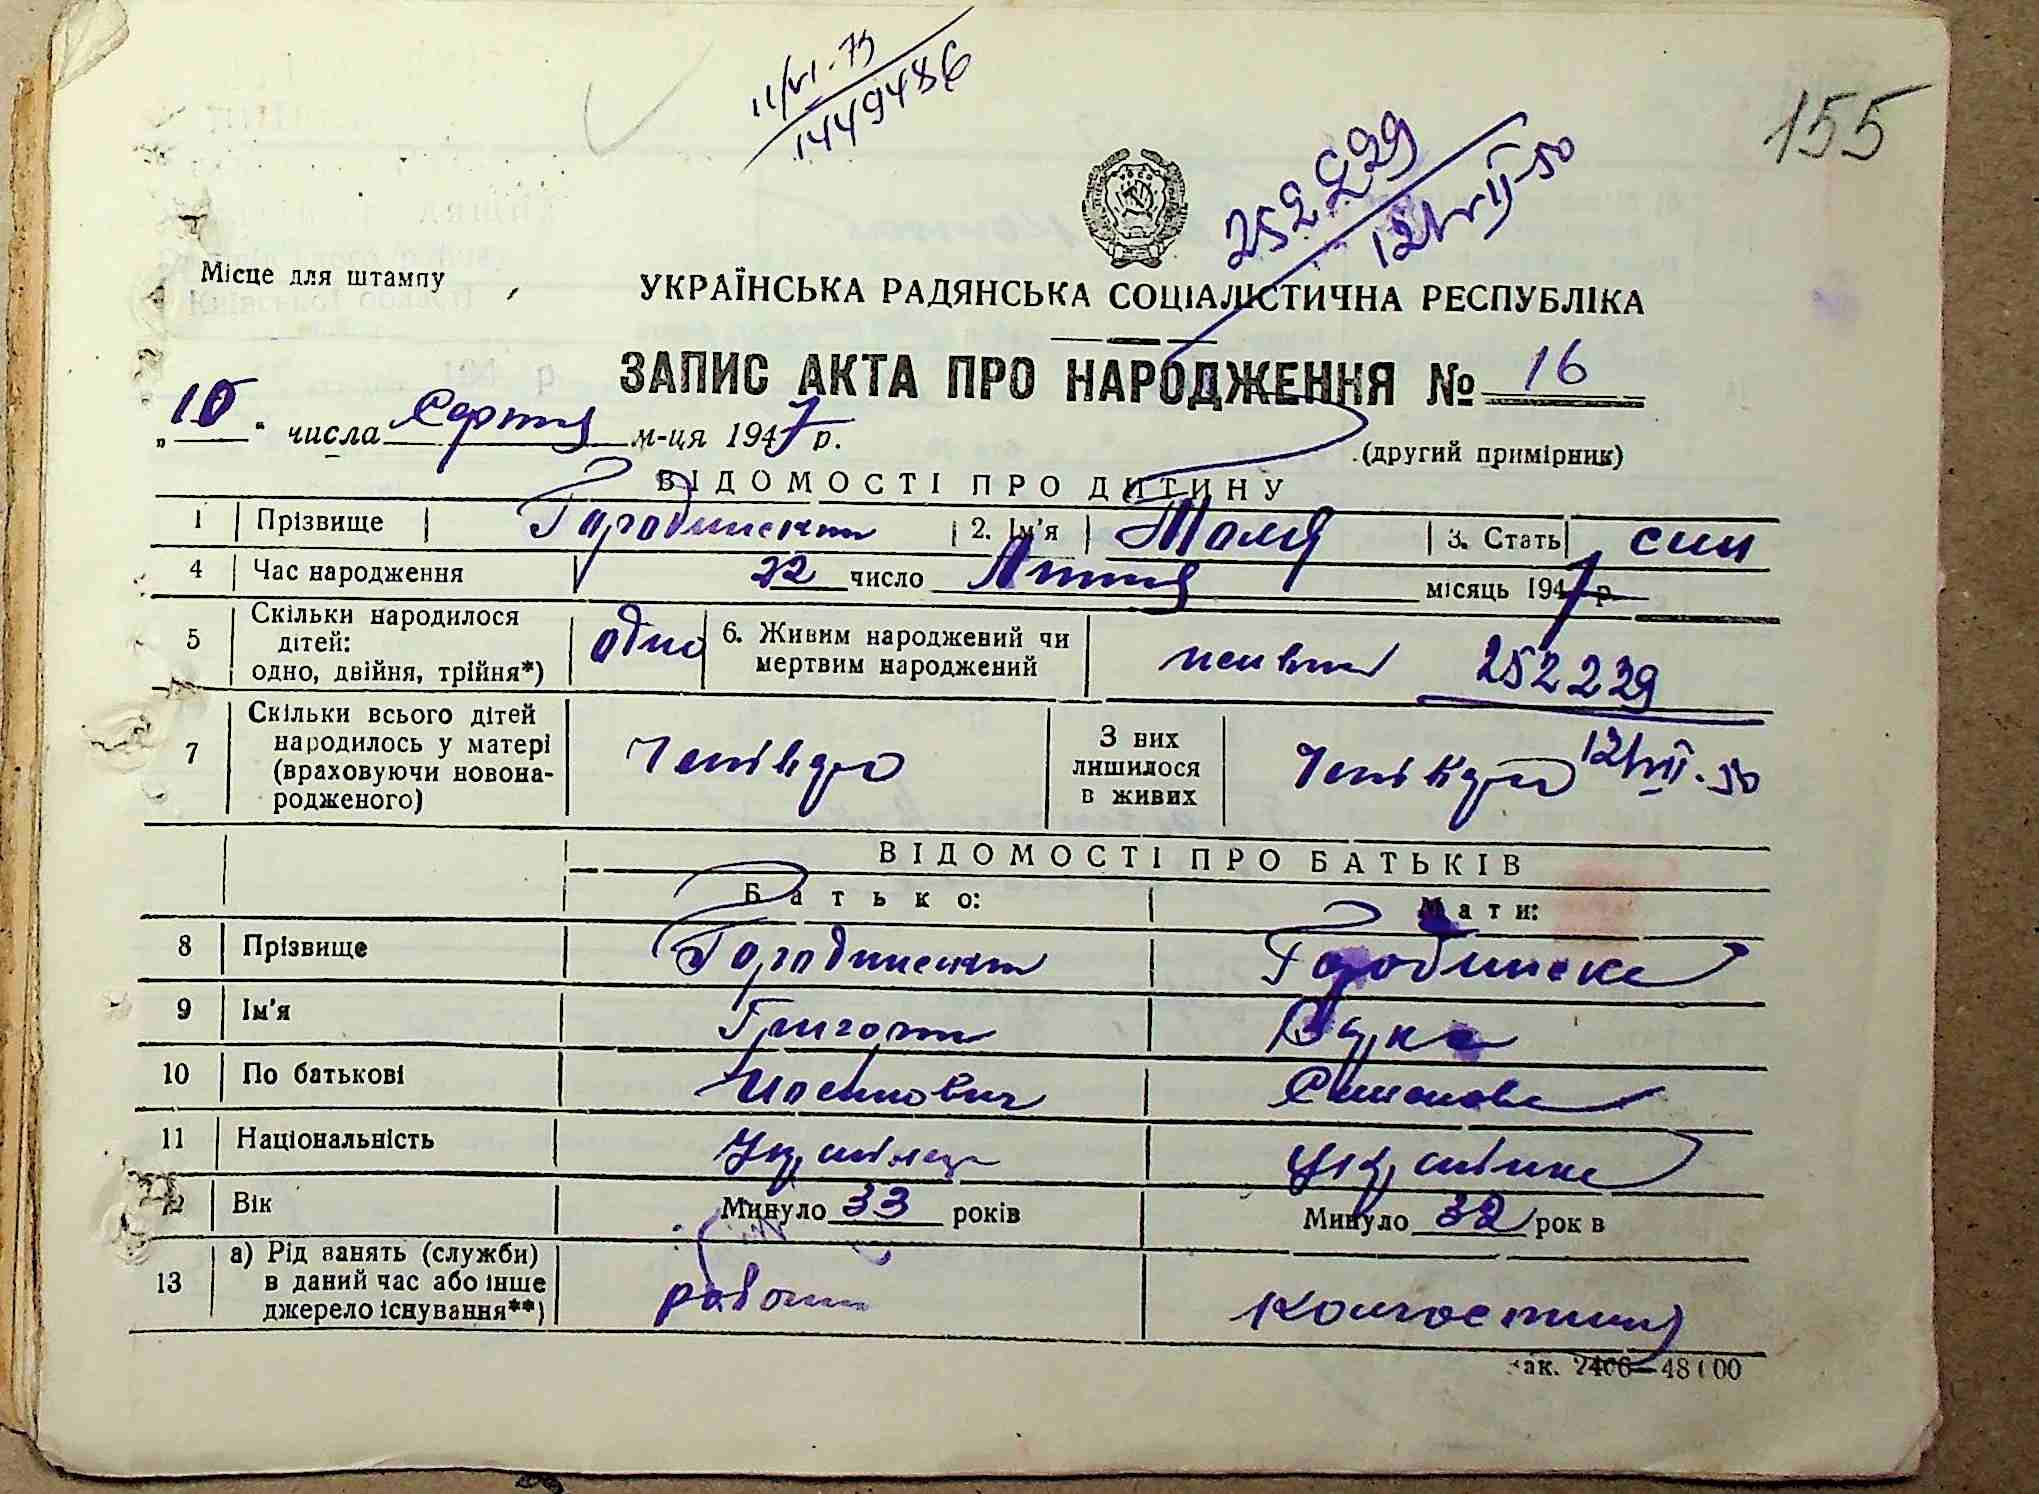 11/VI-75
1449486
155
252229
12/VII-50
Місце для штампу
УКРАЇНСЬКА РАДЯНСЬКА СОЦІАЛІСТИЧНА РЕСПУБЛІКА
ЗАПИС АКТА ПРО НАРОДЖЕННЯ № 16
„10“ числа Серпня м-ця 1947 р.
(другий примірник)
ВІДОМОСТІ ПРО ДИТИНУ
1 Прізвище 2. Ім'я Толя 3. Стать син
4 Час народження 22 число Липня місяць 1947 р.
5 Скільки народилося дітей: одно, двійня, трійня*) одно 6. Живим народжений чи мертвим народжений живим
252229
12/VII-50
7 Скільки всього дітей народилось у матері (враховуючи новонародженого) З них лишилося в живих
ВІДОМОСТІ ПРО БАТЬКІВ
Батько: Мати:
8 Прізвище
9 Ім'я Григорій
10 По батькові
11 Національність Українець Українка
12 Вік Минуло 33 років Минуло 32 років
13 а) Рід занять (служби) в даний час або інше джерело існування**) робочий колгоспниця
Зак. 2406—48000